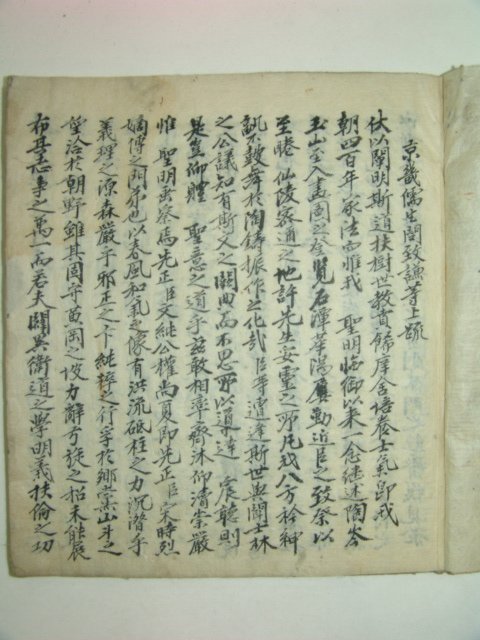 京畿儒生閔致謙等上疏
伏以闡明斯道扶樹世教賁餙庠舍培養士氣卽我
朝四百年家法而惟我 聖明臨御以来一念継述陶岑
玉山堂入畫圖之 覽石潭華陽 勤近臣之致祭以
至睠仙陵密邇之地許先生妥靈之所凡我八方衿紳
孰不鼓舞於陶鋳振作之化哉臣等遭逢斯世與聞士林
之公議知有斯文之闕典而不思所以導達 宸聽則
是豈仰軆 聖意之道乎玆敢相率齋沐仰凟崇嚴
惟 聖明垂察焉先正臣文純公權尚夏卽先正臣宋時烈
嫡傳之門弟也以春風和氣之像有洪流砥柱之力沉潜乎
義理之源森嚴乎邪正之卞純粹之行孚於鄉黨山斗之
望洽於朝野雖其固守黃岡之坡力辭旁旋之招未能展
布其志事之萬一而若夫闢異衛道之學明義扶倫之功